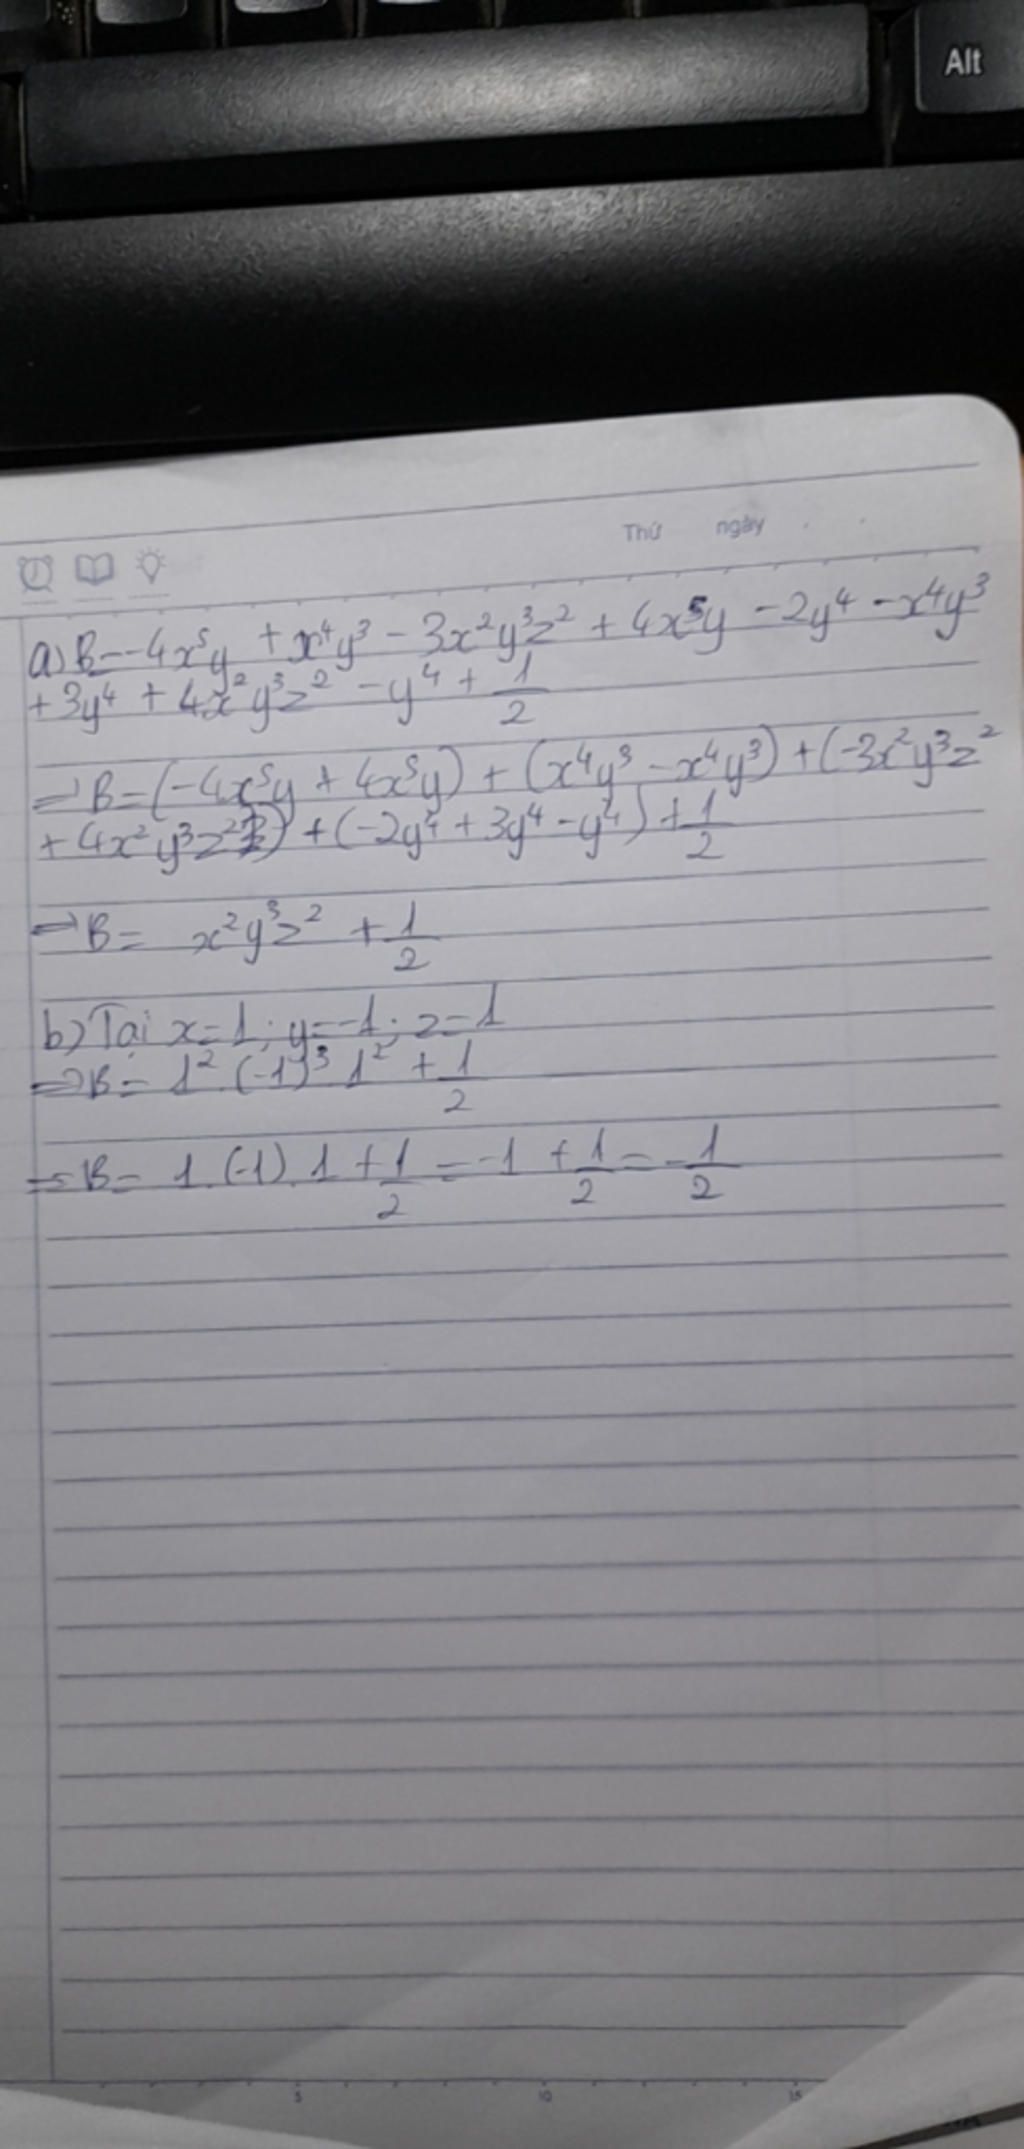 Alt
Thứ ngày
a) B=-4x⁵y + x⁴y³ - 3x²y³z² + 4x⁵y - 2y⁴ - x⁴y³
+ 3y⁴ + 4x²y³z² - y⁴ + 1/2
=> B=(-4x⁵y + 4x⁵y) + (x⁴y³ - x⁴y³) + (-3x²y³z²
+ 4x²y³z²) + (-2y⁴ + 3y⁴ - y⁴) + 1/2
=> B= x²y³z² + 1/2
b) Tại x=1; y=-1; z=1
=> B= 1².(-1)³.1² + 1/2
=> B= 1.(-1).1 + 1/2 = -1 + 1/2 = -1/2
5 10 15